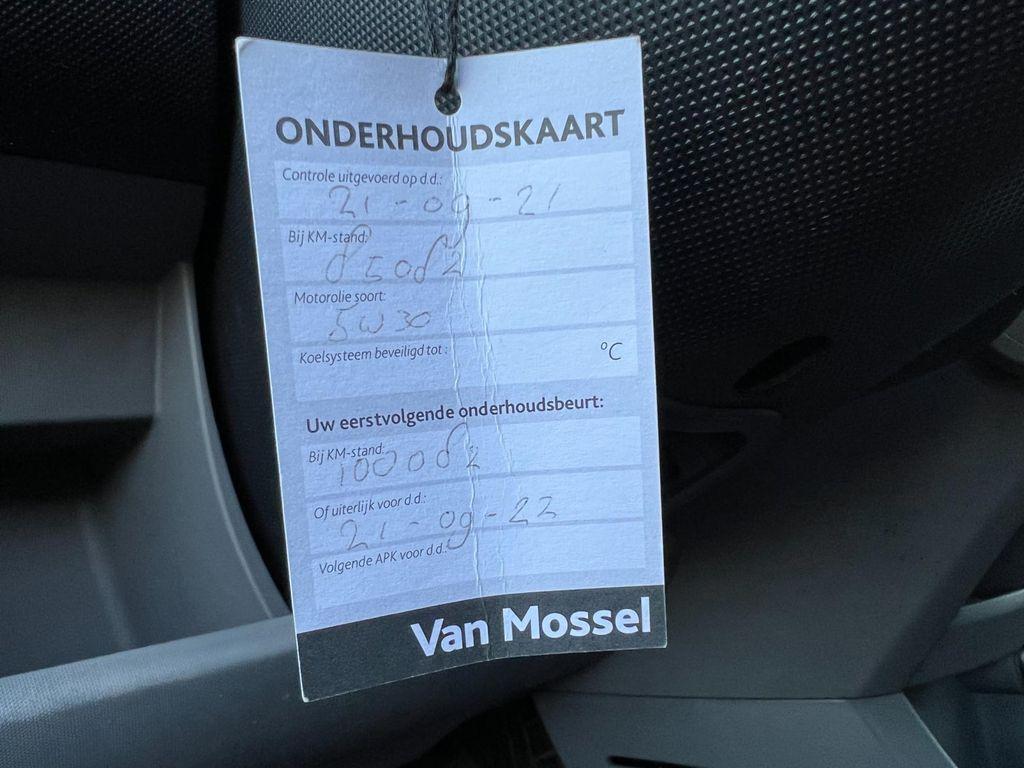 ONDERHOUDSKAART
Controle uitgevoerd op d.d.:
21-09-21
Bij KM-stand:
85082
Motorolie soort:
5W30
Koelsysteem beveiligd tot :
°C
Uw eerstvolgende onderhoudsbeurt:
Bij KM-stand:
100082
Of uiterlijk voor d.d.:
21-09-22
Volgende APK voor d.d.:
Van Mossel